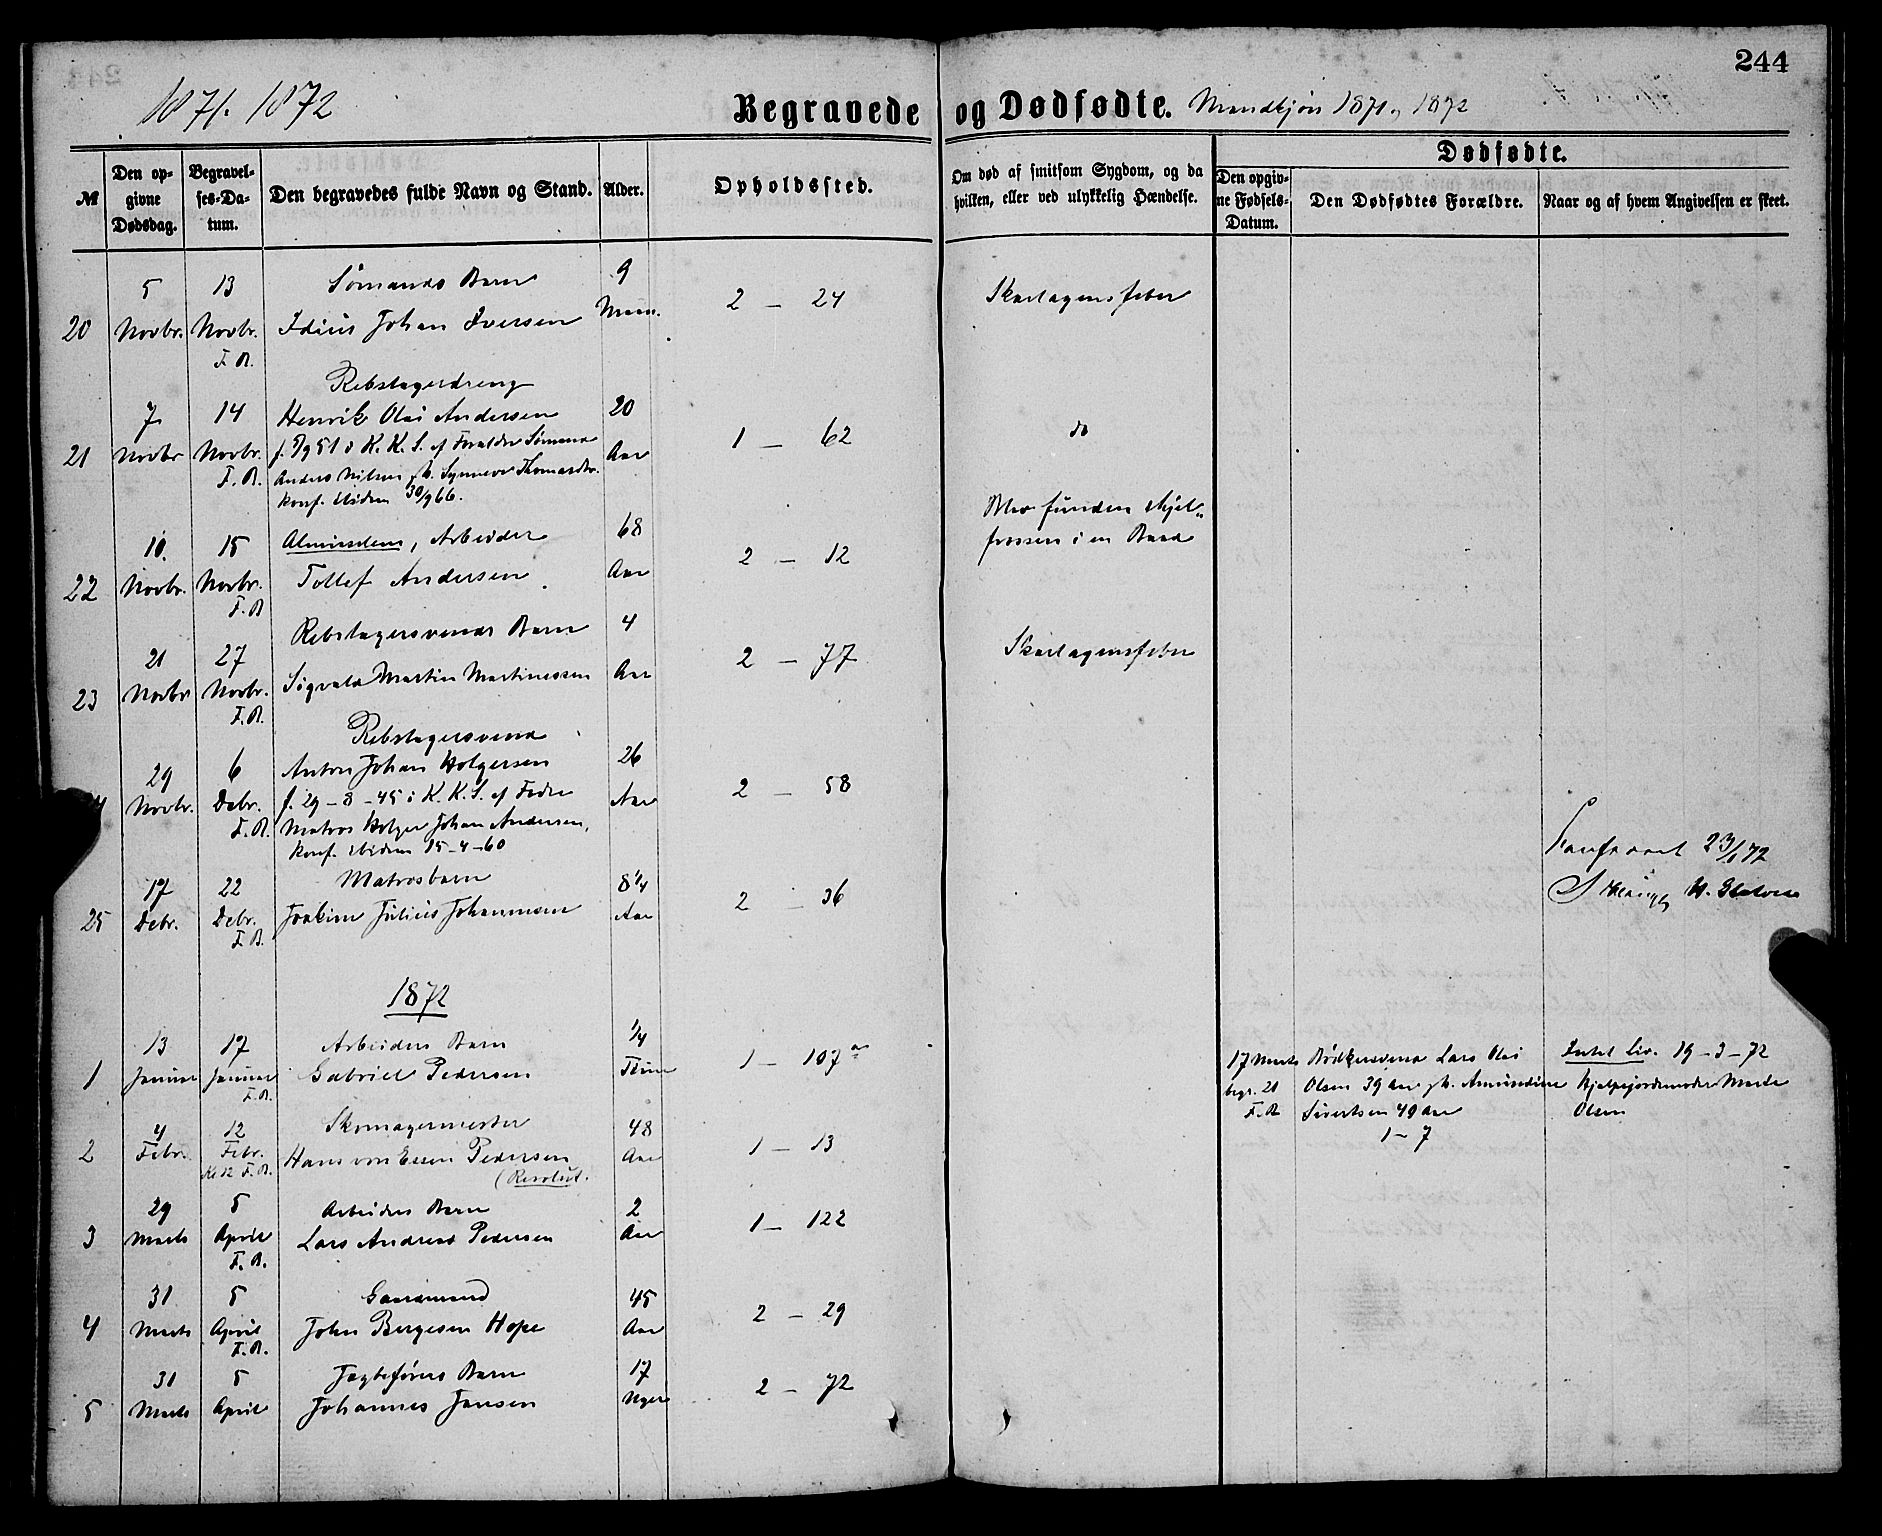 244
1871. 1872
Begravede og Dødfødte. Mandkjøn 1871 og 1872
№
Den opgivne Dødsdag.
Begravelses-Datum.
Den begravedes fulde Navn og Stand.
Alder.
Opholdssted.
Om død af smitsom Sygdom, og da hvilken, eller ved ulykkelig Hændelse.
Dødfødte.
Den opgivne Fødsels-Datum.
Den Dødfødtes Forældre.
Naar og af hvem Angivelsen er skeet.
20
5 Novbr.
13 Novbr. F. B.
Sømands Barn
Idius Johan Iversen
9 Maan.
2 – 24
Skarlagensfeber
21
7 Novbr
14 Novbr. F. B.
Rebslagerdreng
Henrik Olai Andersen
f. 5/9 51 i K. K. S. af Forældre Sømand
Anders Nilsen og h. Synneve Thomasdtr.
konf. ibidem 30/9 66.
20 Aar
1 – 62
do
22
10. Novbr.
15 Novbr. F. B
Almisselem, Arbeider
Tollef Andersen
68 Aar
2 – 12
Blev funden ihjel-
frossen i en Baad
23
21 Novbr
27 Novbr. F. B.
Rebslagersvends Barn
Sigvald Martin Martinussen
4 Aar
2 – 77
Skarlagensfeber
29 Novbr.
6 Debr. F. B.
Rebslagersvend
Anton Johan Holgersen
f. 29 – 8 – 45 i K. K. S. af Fader
Matros Holger Johan Andersen,
konf. ibidem 15 – 4 – 60
26 Aar
2 – 58
25
17 Debr.
22 Debr. F. B.
Matrosbarn
Joakim Julius Johannesen
8 1/4 Aar
2 – 36
Confereret 23/1 72
1872
1
13 Januar
17 Januar F. B.
Arbeiders Barn
Gabriel Pedersen
1/4 Time
1 – 107 a
17 Marts
begr. 21
F. B
Bødkersvend Lars Olai
Olsen 39 Aar og h. Amundine
Sivertsen 40 Aar
1 – 7
Intet Liv. 19 – 3 – 72
Hjelpejordemoder Marte
Olsen
2
4 Febr.
12 Febr. Kl 12 F. B.
Skomagermester
Hans von Essen Pedersen
(Resolut.
48 Aar
1 – 13
3
29 Marts
5 April F. B.
Arbeiders Barn
Lars Andreas Pedersen
2 Aar
1 – 122
4
31 Marts
5 April F. B.
Gaardmand
John Børgesen Hope
45 Aar
2 – 29
5
31 Marts
5 April
Jægteførers Barn
Johannes Jansen
17 Uger
2 – 72